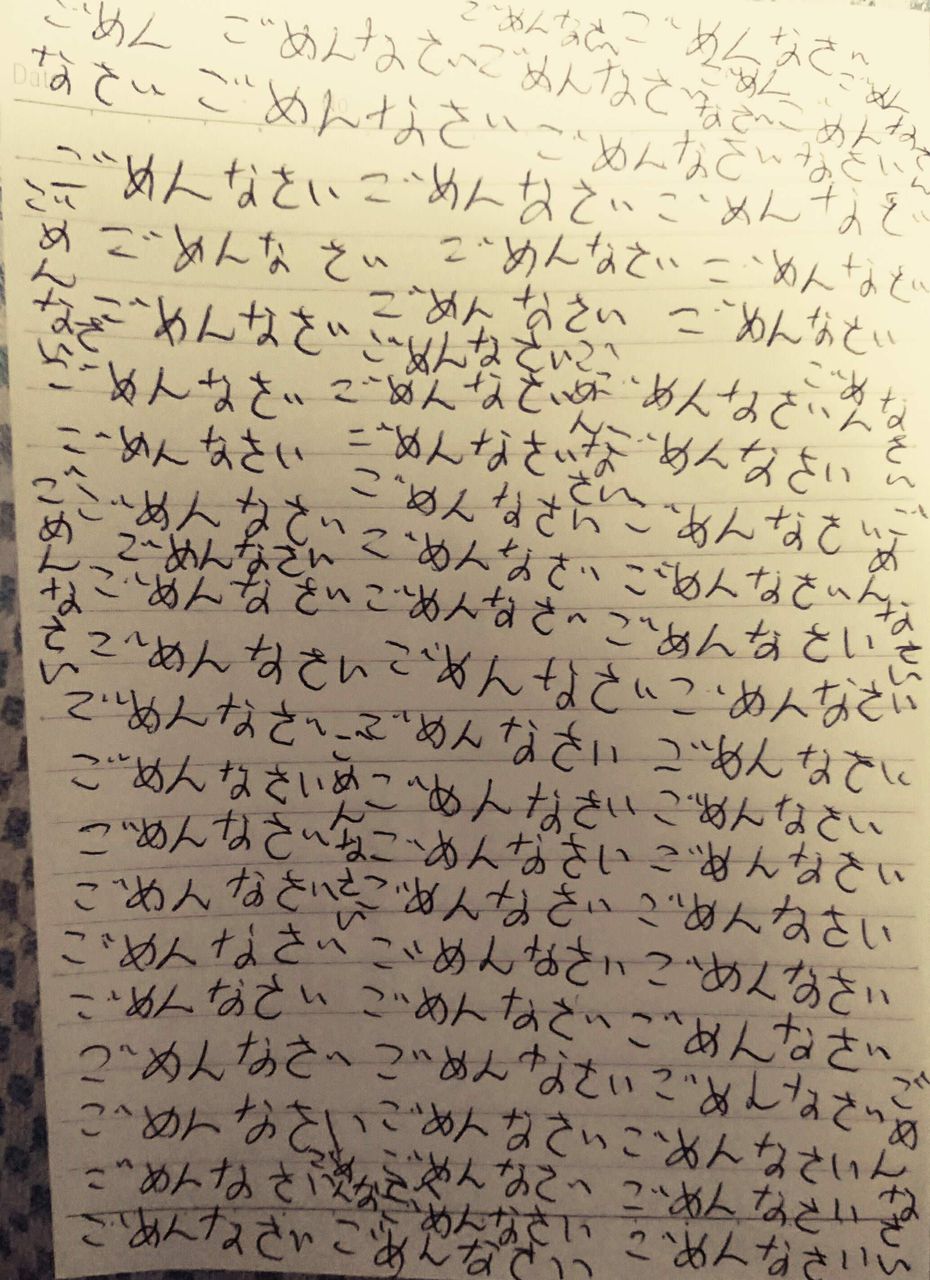 ごめんなさい
ごめん ごめんなさい ごめんなさい
なさい ごめんなさい ごめんなさい ごめんなさい
ごめんなさい
ごめんなさい
ごめんなさい ごめんなさい ごめんなさい
ごめんなさい
ごめんなさい ごめんなさい ごめんなさい
ごめんなさい ごめんなさい ごめんなさい
ごめんなさい
ごめんなさい ごめんなさい ごめんなさい
ごめんなさい
ごめんなさい
ごめんなさい ごめんなさい ごめんなさい
ごめんなさい ごめんなさい ごめんなさい
ごめんなさい
ごめんなさい
ごめんなさい ごめんなさい ごめんなさい
ごめんなさい ごめんなさい ごめんなさい
ごめんなさい
ごめんなさい ごめんなさい ごめんなさい
ごめんなさい ごめんなさい ごめんなさい
ごめんなさい
ごめんなさい ごめんなさい ごめんなさい
ごめんなさい ごめんなさい ごめんなさい
ごめんなさい ごめんなさい ごめんなさい
ごめんなさい ごめんなさい ごめんなさい
ごめんなさい ごめんなさい ごめんなさい
ごめんなさい ごめんなさい ごめんなさい
ごめんなさい ごめんなさい ごめんなさい
ごめんなさい
ごめんなさい ごめんなさい ごめんなさい
ごめんなさい
ごめんなさい
ごめんなさい ごめんなさい ごめんなさい